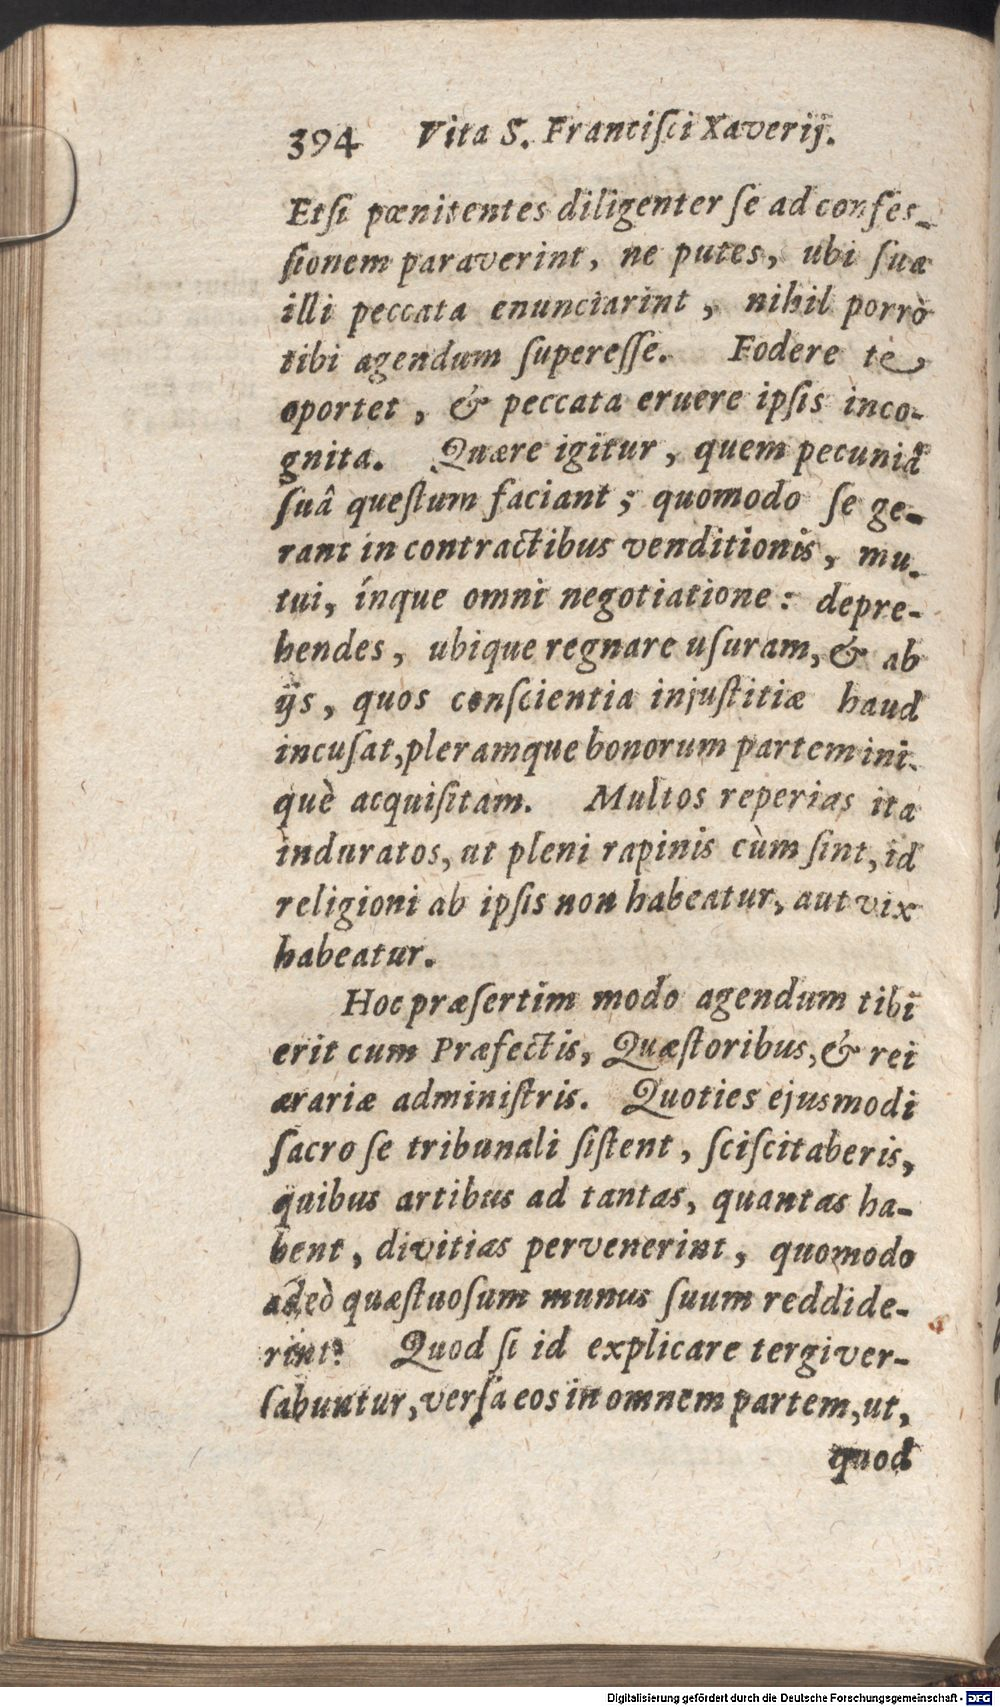 394 Vita S. Franciſci Xaverij.
Etſi pœnitentes diligenter ſe ad confeſ-
ſionem paraverint, ne putes, ubi ſuæ
illi peccata enunciarint, nihil porrò
tibi agendum ſupereſſe. Fodere te
oportet, & peccata eruere ipſis inco-
gnita. Quære igitur, quem pecuniâ
ſuâ queſtum faciant; quomodo ſe ge-
rant in contractibus venditionis, mu-
tui, ínque omni negotiatione: depre-
hendes, ubique regnare uſuram, & ab
ijs, quos conſcientia injuſtitiæ haud
incuſat, pleramque bonorum partem ini-
què acquiſitam. Multos reperias ita
induratos, ut pleni rapinis cùm ſint, id
religioni ab ipſis non habeatur, aut vix
habeatur.
Hoc præſertim modo agendum tibi
erit cum Præfectis, Quæſtoribus, & rei
ærariæ adminiſtris. Quoties ejusmodi
ſacro ſe tribunali ſiſtent, ſciſcitaberis,
quibus artibus ad tantas, quantas ha-
bent, divitias pervenerint, quomodo
adeò quæſtuoſum munus ſuum reddide-
rint? Quod ſi id explicare tergiver-
ſabuntur, verſa eos in omnem partem, ut,
quod
Digitalisierung gefördert durch die Deutsche Forschungsgemeinschaft - DFG